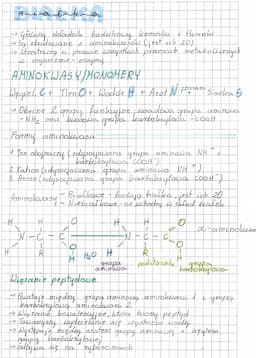 BIAŁKA
→ Główny składnik budulcowy komórki i tkanki
→ Są zbudowane z aminokwasów (jest ich 20)
→ Uczestniczą w prawie wszystkich procesach metabolicznych
w organizmie - enzymy
AMINOKWASY/MONOMERY
Węgiel C + Tlen O + Wodór H + Azot N + czasami Siarka S
→ Obecne 2 grupy funkcyjne: zasadowa grupa aminowa
-NH₂ oraz kwasowa grupa karboksylowa -COOH
Formy aminokwasu
1. Jon obojnaczy (zdysocjowana grupa aminowa NH⁺ i
karboksylowa COO⁻)
2. Kation (zdysocjowana grupa aminowa NH⁺)
3. Anion (zdysocjowana grupa karboksylowa COO⁻)
Aminokwasy
Białkowe - budują białka, jest ich 20
Niebiałkowe - nie wchodzą w skład białek
H H O H H O
N - C - C N - C - C
H R OH H₂O H R OH
α-aminokwas
grupa aminowa
podstawnik
grupa karboksylowa
Wiązanie peptydowe
→ Powstaje między grupą aminową aminokwasu 1 i grupą
karboksylową aminokwasu 2
→ Wiązanie kowalencyjne, które tworzy peptyd
→ Towarzyszy wydzielanie się cząsteczki wody
→ Występuje między azotem grupy aminowej i węglem
grupy karboksylowej
→ Odbywa się na rybosomach